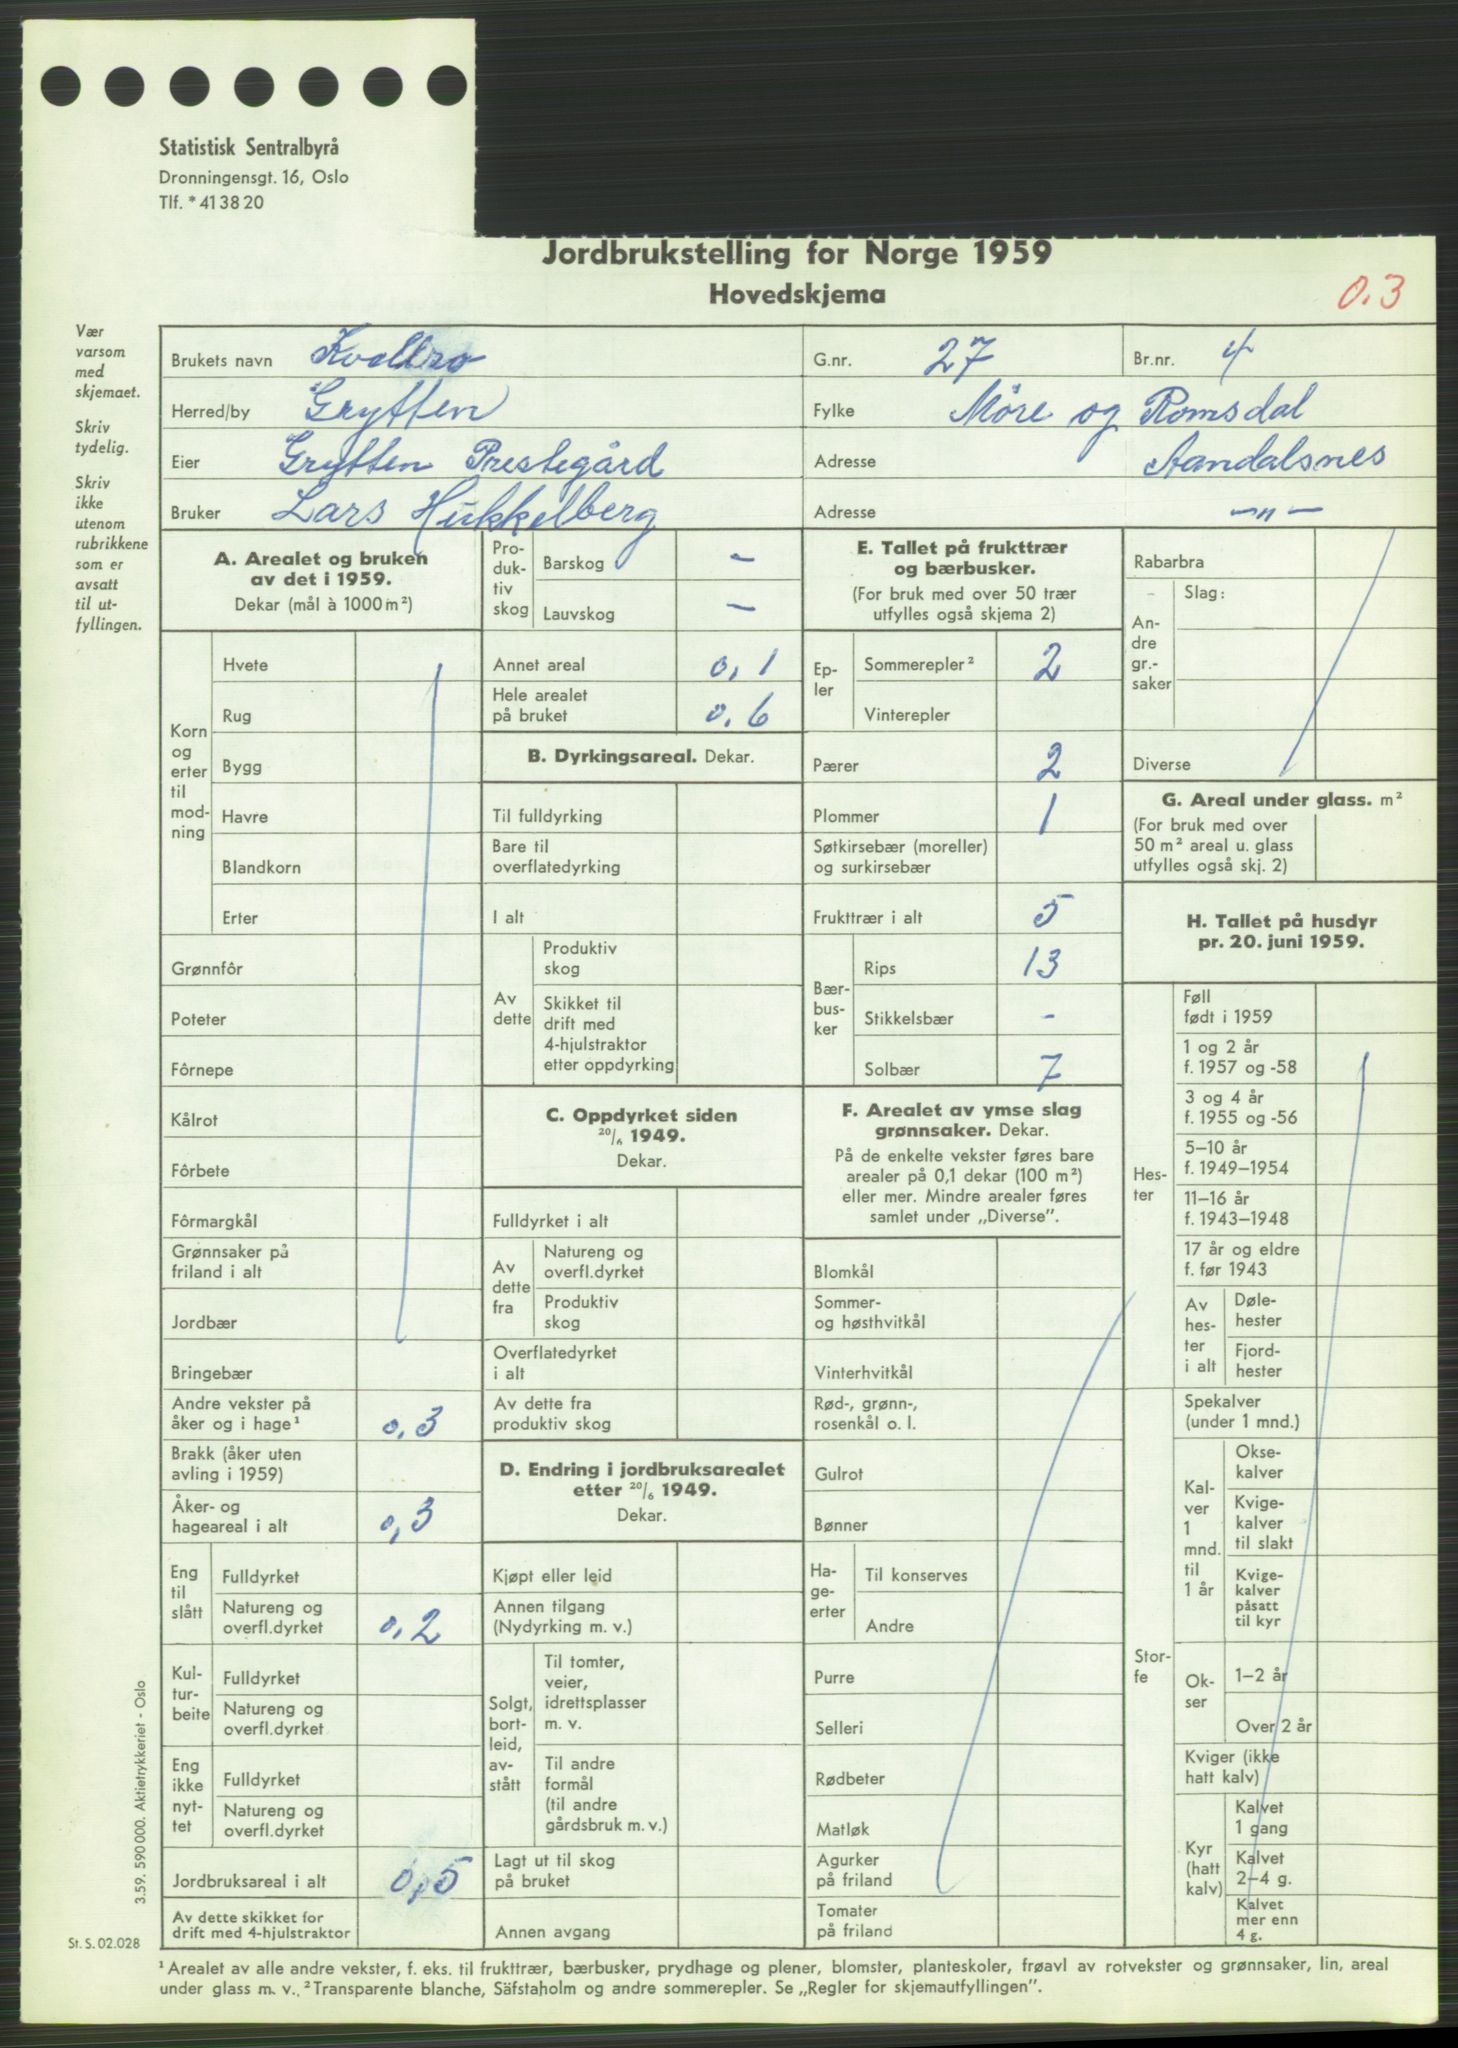 Statistisk Sentralbyrå
Dronningensgt. 16, Oslo
Tlf. * 41 38 20
Jordbrukstelling for Norge 1959
Hovedskjema
0.3
Vær
varsom
med
skjemaet.
Skriv
tydelig.
Skriv
ikke
utenom
rubrikkene
som er
avsatt
til ut-
fyllingen.
Brukets navn
G.nr. 27
Br.nr. 4
Herred/by Grytten
Fylke Möre og Romsdal
Eier Grytten Prestegård
Adresse Aandalsnes
Bruker Lars Hukkelberg
Adresse —"—
A. Arealet og bruken
av det i 1959.
Dekar (mål à 1000 m²)
Korn
og
erter
til
mod-
ning
Hvete
Rug
Bygg
Havre
Blandkorn
Erter
Grønnfôr
Poteter
Fôrnepe
Kålrot
Fôrbete
Fôrmargkål
Grønnsaker på
friland i alt
Jordbær
Bringebær
Andre vekster på
åker og i hage¹ 0,3
Brakk (åker uten
avling i 1959)
Åker- og
hageareal i alt 0,3
Eng
til
slått
Fulldyrket
Natureng og
overfl.dyrket 0,2
Kul-
tur-
beite
Fulldyrket
Natureng og
overfl.dyrket
Eng
ikke
nyt-
tet
Fulldyrket
Natureng og
overfl.dyrket
Jordbruksareal i alt 0,5
Av dette skikket for
drift med 4-hjulstraktor
Pro-
duk-
tiv
skog
Barskog –
Lauvskog –
Annet areal 0,1
Hele arealet
på bruket 0,6
B. Dyrkingsareal. Dekar.
Til fulldyrking
Bare til
overflatedyrking
I alt
Av
dette
Produktiv
skog
Skikket til
drift med
4-hjulstraktor
etter oppdyrking
C. Oppdyrket siden
20/6 1949.
Dekar.
Fulldyrket i alt
Av
dette
fra
Natureng og
overfl.dyrket
Produktiv
skog
Overflatedyrket
i alt
Av dette fra
produktiv skog
D. Endring i jordbruksarealet
etter 20/6 1949.
Dekar.
Kjøpt eller leid
Annen tilgang
(Nydyrking m. v.)
Solgt,
bort-
leid,
av-
stått
Til tomter,
veier,
idrettsplasser
m. v.
Til andre
formål
(til andre
gårdsbruk m. v.)
Lagt ut til skog
på bruket
Annen avgang
E. Tallet på frukttrær
og bærbusker.
(For bruk med over 50 trær
utfylles også skjema 2)
Ep-
ler
Sommerepler² 2
Vinterepler
Pærer 2
Plommer 1
Søtkirsebær (moreller)
og surkirsebær
Frukttrær i alt 5
Bær-
bus-
ker
Rips 13
Stikkelsbær -
Solbær 7
F. Arealet av ymse slag
grønnsaker. Dekar.
På de enkelte vekster føres bare
arealer på 0,1 dekar (100 m²)
eller mer. Mindre arealer føres
samlet under „Diverse”.
Blomkål
Sommer-
og høsthvitkål
Vinterhvitkål
Rød-, grønn-,
rosenkål o. l.
Gulrot
Bønner
Ha-
ge-
erter
Til konserves
Andre
Purre
Selleri
Rødbeter
Matløk
Agurker
på friland
Tomater
på friland
Rabarbra
An-
dre
gr.-
saker
Slag:
Diverse
G. Areal under glass. m²
(For bruk med over
50 m² areal u. glass
utfylles også skj. 2)
H. Tallet på husdyr
pr. 20. juni 1959.
Hes-
ter
Føll
født i 1959
1 og 2 år
f. 1957 og -58
3 og 4 år
f. 1955 og -56
5–10 år
f. 1949–1954
11–16 år
f. 1943–1948
17 år og eldre
f. før 1943
Av
hes-
ter
i alt
Døle-
hester
Fjord-
hester
Stor-
fe
Spekalver
(under 1 mnd.)
Kal-
ver
1
mnd.
til
1 år
Okse-
kalver
Kvige-
kalver
til slakt
Kvige-
kalver
påsatt
til kyr
Ok-
ser
1–2 år
Over 2 år
Kviger (ikke
hatt kalv)
Kyr
(hatt
kalv)
Kalvet
1 gang
Kalvet
2–4 g.
Kalvet
mer enn
4 g.
3.59. 590 000. Aktietrykkeriet - Oslo
St. S. 02.028
¹ Arealet av alle andre vekster, f. eks. til frukttrær, bærbusker, prydhage og plener, blomster, planteskoler, frøavl av rotvekster og grønnsaker, lin, areal
under glass m. v. ² Transparente blanche, Säfstaholm og andre sommerepler. Se „Regler for skjemautfyllingen”.